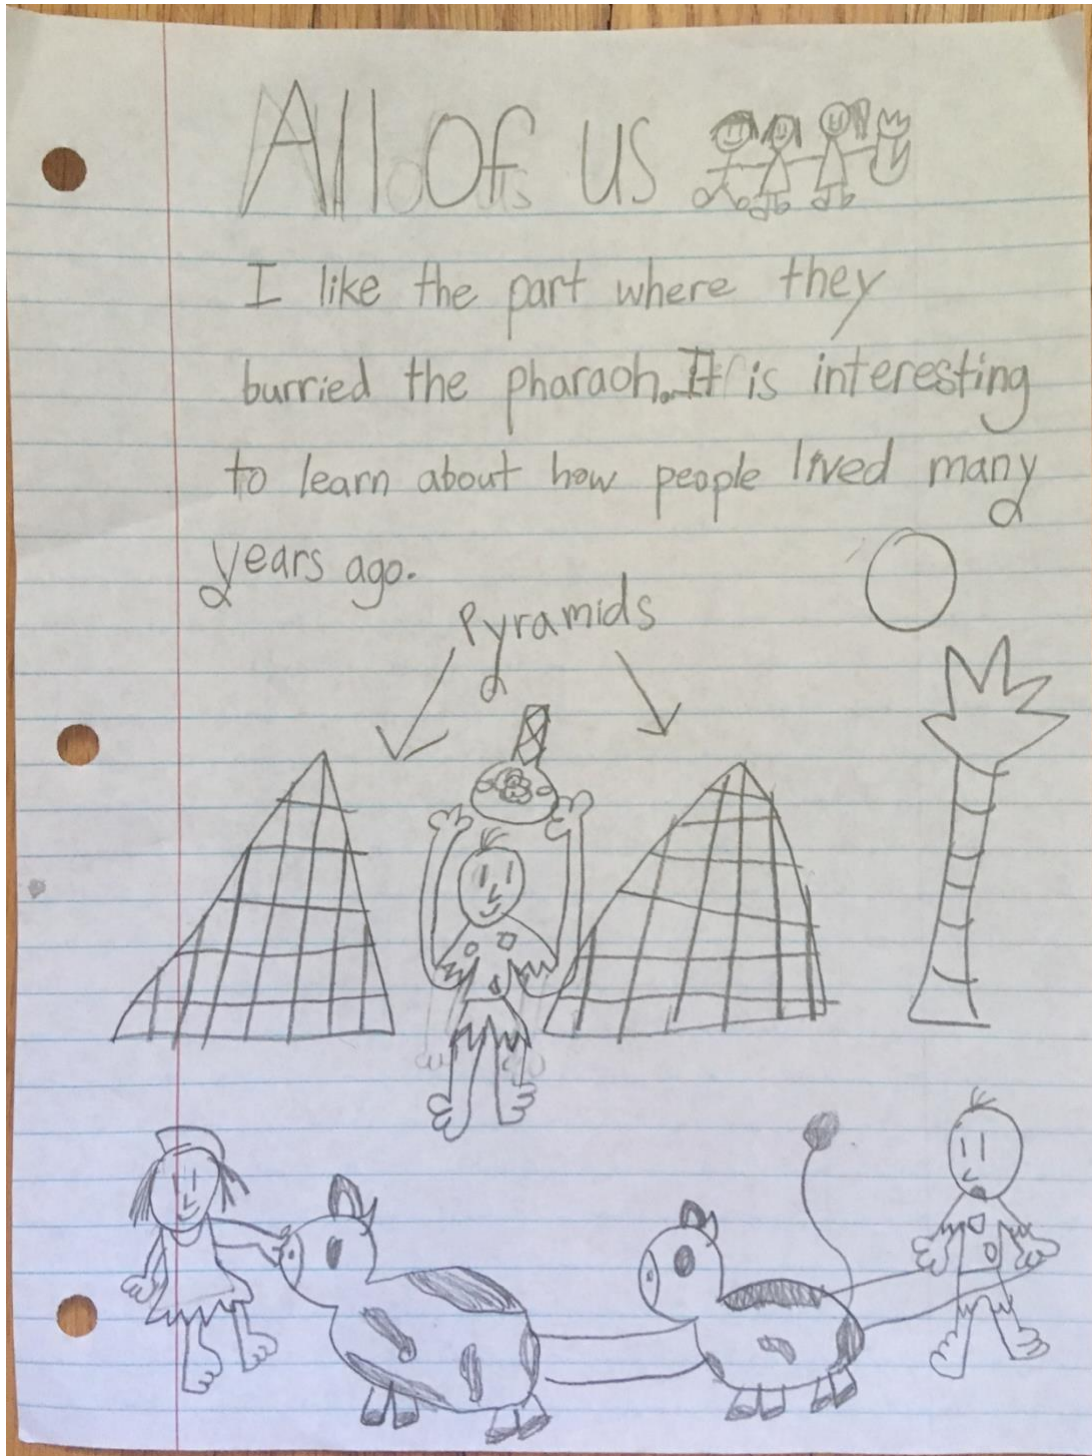 All Of us
I like the part where they
burried the pharaoh. It is interesting
to learn about how people lived many
years ago.
Pyramids